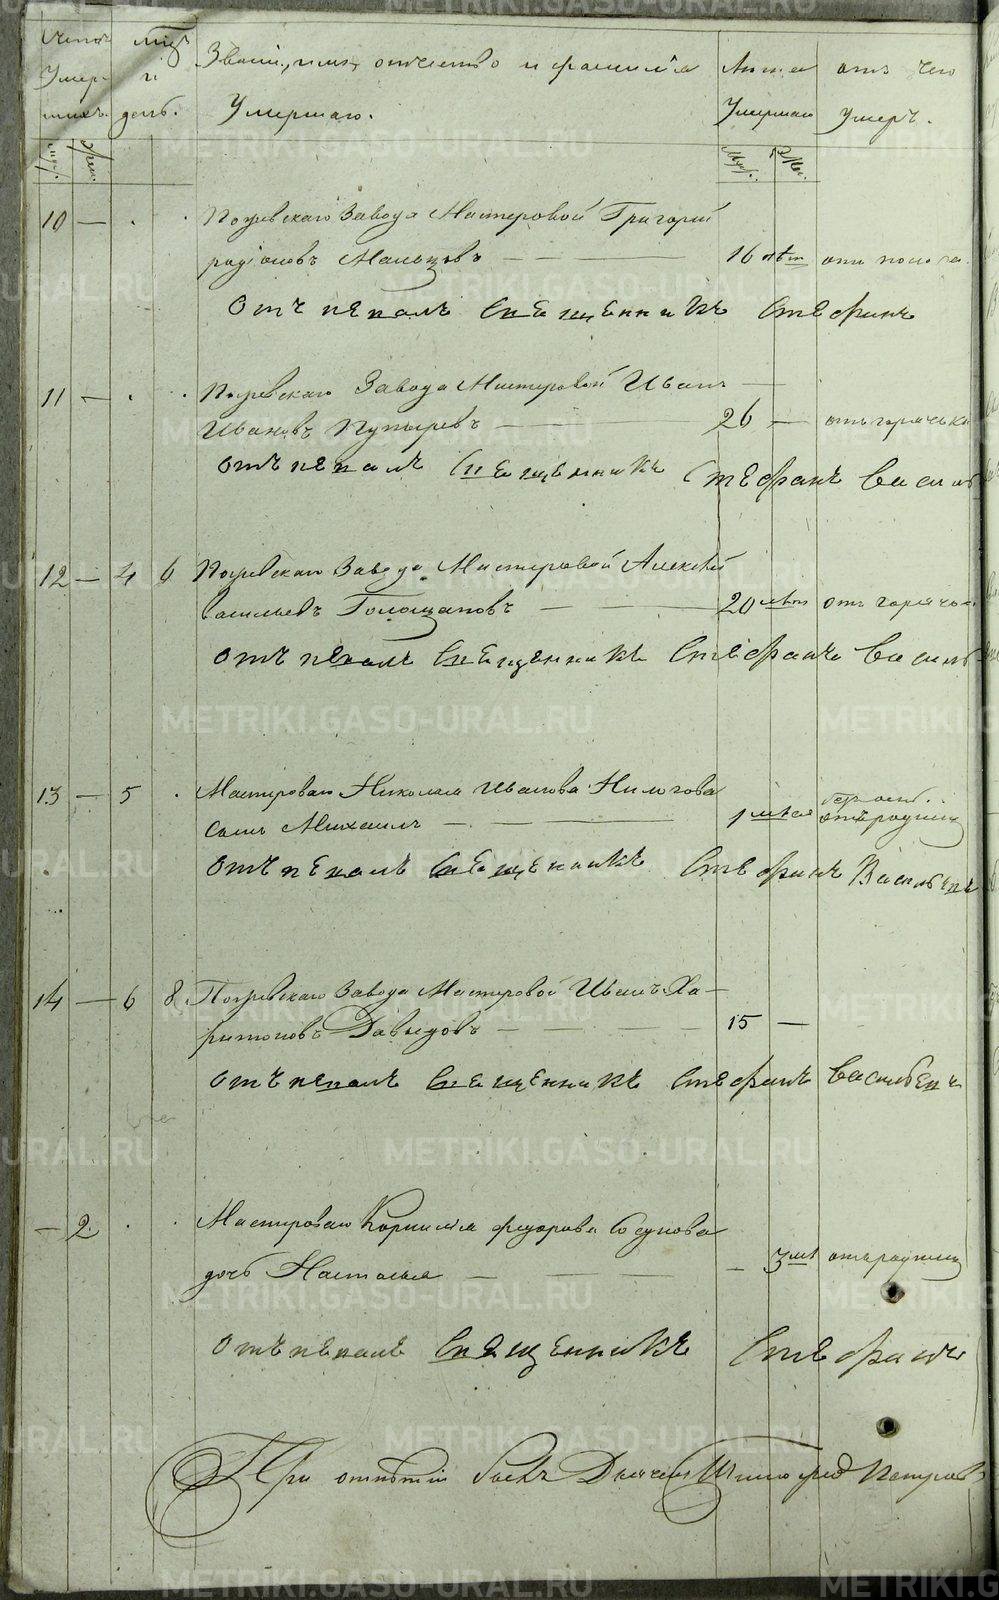 Число Умер- ших.
мцъ и день.
Званiи, имя, отчество и фамилiя Умершаго.
Лета Умершаго
отъ чего умеръ.
муж. жен.
муж. жен.
10 — Пожевскаго Завода Мастеровой Григорiй
родiоновъ Мальцовъ — 16 лѣт отъ
отъпевалъ Священникъ Стефанъ
11 — Пожевскаго Завода Мастеровой Иванъ —
Ивановъ Пупыревъ — 26 — отъ горячьки
отъпевалъ Священникъ Стефанъ Василь
12 — 4 6 Пожевскаго Завода Мастеровой Алексѣй
Васильевъ Голощаповъ — 20 лѣт отъ горячь
отъпевалъ Священникъ Стефанъ Василь
13 — 5 Мастероваго Николая Иванова
сынъ Михаилъ — 1 мѣся отъ родимц
отъпевалъ Священникъ Стефанъ Васильевъ
14 — 6 8 Пожевскаго Завода Мастеровой Иванъ Ха-
ритоновъ Давыдовъ — 15 —
отъпевалъ Священникъ Стефанъ Васильевъ
— 2 Мастероваго Корнилiя федорова
дочь Наталья — 3 мѣ отъ родимц
отъпевалъ Священникъ Стефанъ
При отпѣтiи былъ Дьячекъ
METRIKI.GASO-URAL.RU